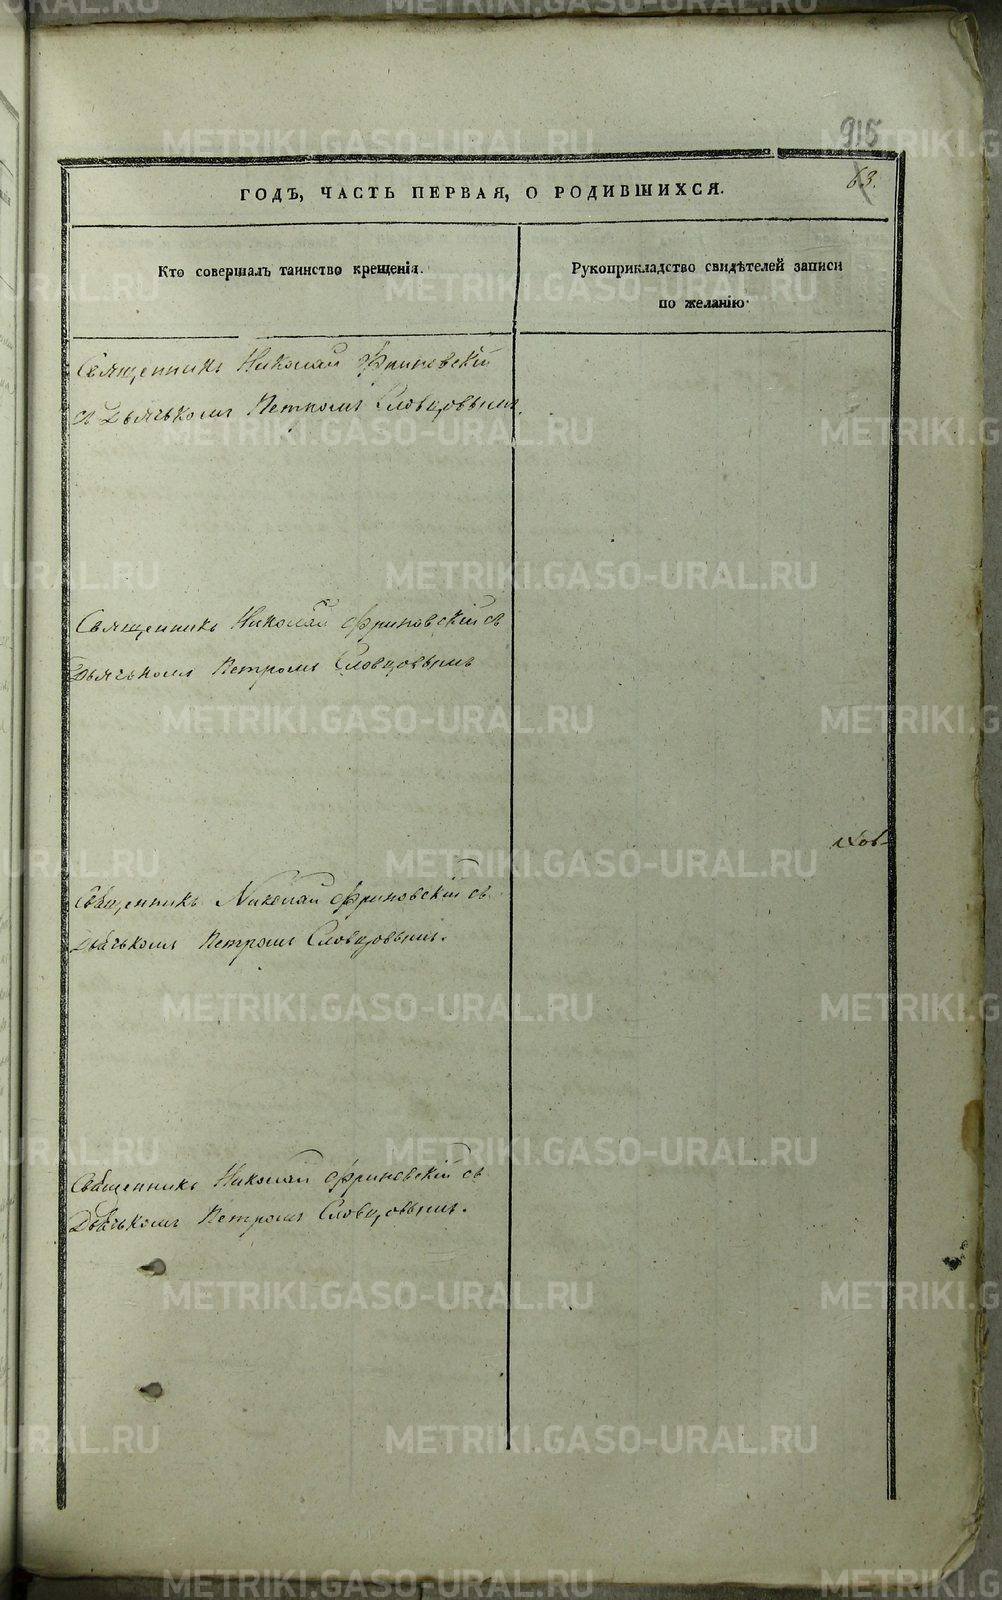 915
63.
ГОДЪ, ЧАСТЬ ПЕРВАЯ, О РОДИВШИХСЯ.
Кто совершалъ таинство крещенія.
Рукоприкладство свидѣтелей записи
по желанію.
Священникъ Николай Фриновскій
съ Дьячькомъ Петромъ Словцовымъ.
Священникъ Николай Фриновскій съ
Дьячькомъ Петромъ Словцовымъ
Священникъ Николай Фриновскій съ
Дьячькомъ Петромъ Словцовымъ.
Священникъ Николай Фриновскій съ
Дьячькомъ Петромъ Словцовымъ.
METRIKI.GASO-URAL.RU